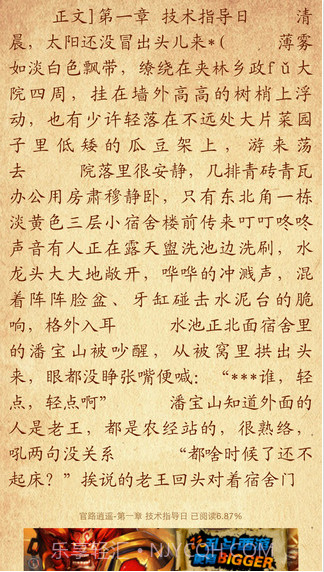 正文]第一章 技术指导日 清
晨，太阳还没冒出头儿来*( 薄雾
如淡白色飘带，缭绕在夹林乡政fǔ大
院四周，挂在墙外高高的树梢上浮
动，也有少许轻落在不远处大片菜园
子里低矮的瓜豆架上，游来荡
去 院落里很安静，几排青砖青瓦
办公用房肃穆静卧，只有东北角一栋
淡黄色三层小宿舍楼前传来叮叮咚咚
声音有人正在露天盥洗池边洗刷，水
龙头大大地敞开，哗哗的冲溅声，混
着阵阵脸盆、牙缸碰去水泥台的脆
响，格外入耳 水池正北面宿舍里
的潘宝山被吵醒，从被窝里拱出头
来，眼都没睁张嘴便喊：“***谁，轻
点，轻点啊” 潘宝山知道外面的
人是老王，都是农经站的，很熟络，
吼两句没关系 “都啥时候了还不
起床？”挨说的老王回头对着宿舍门
官路逍遥-第一章 技术指导日 已阅读6.87%
乐享轻汇·NJYCOH.COM
BIGGER